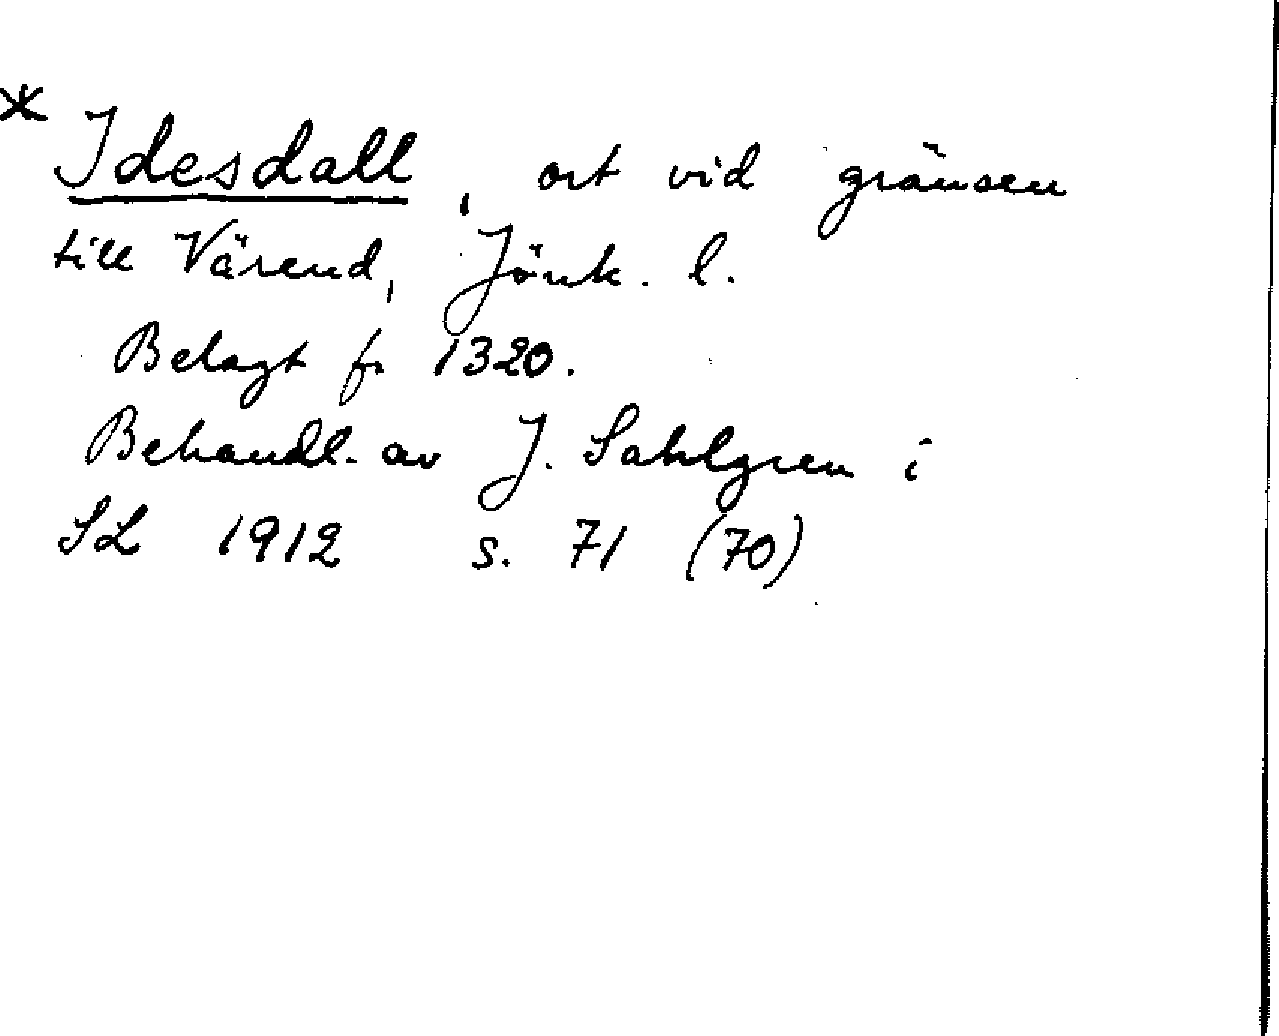 * Idesdall, ort vid gränsen
till Värend, Jönk. l.
Belagt fr 1320.
Behandl. av J. Sahlgren i
SL 1912 s. 71 (70)